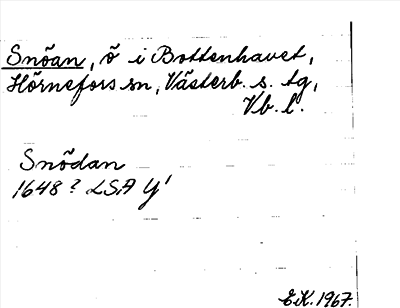 Snöan, ö i Bottenhavet,
Hörnefors sn, Västerb. s. tg,
Vb. l.
Snödan
1648? LSA Y¹
E.K. 1967.